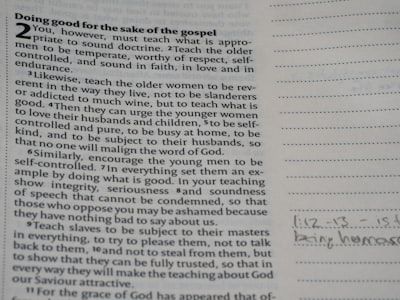 Doing good for the sake of the gospel
2 You, however, must teach what is appro-
priate to sound doctrine. 2Teach the older
men to be temperate, worthy of respect, self-
controlled, and sound in faith, in love and in
endurance.
3Likewise, teach the older women to be rev-
erent in the way they live, not to be slanderers
or addicted to much wine, but to teach what is
good. 4Then they can urge the younger women
to love their husbands and children, 5to be self-
controlled and pure, to be busy at home, to be
kind, and to be subject to their husbands, so
that no one will malign the word of God.
6Similarly, encourage the young men to be
self-controlled. 7In everything set them an ex-
ample by doing what is good. In your teaching
show integrity, seriousness 8and soundness
of speech that cannot be condemned, so that
those who oppose you may be ashamed because
they have nothing bad to say about us.
9Teach slaves to be subject to their masters
in everything, to try to please them, not to talk
back to them, 10and not to steal from them, but
to show that they can be fully trusted, so that in
every way they will make the teaching about God
our Saviour attractive.
11For the grace of God has appeared that of-
1:12-13 -
being